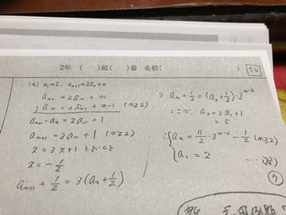 2年 ( )組( )番 名前( )
(4) a₁=2, aₙ₊₁=2Sₙ+n
aₙ₊₁=2Sₙ+n
aₙ=2Sₙ₋₁+n-1 (n≧2)
aₙ₊₁-aₙ=2aₙ+1
aₙ₊₁=3aₙ+1 (n≧2)
x=3x+1 とおくと
x=-1/2
aₙ₊₁+1/2=3(aₙ+1/2)
aₙ+1/2=(a₂+1/2)・3ⁿ⁻²
a₂=2S₁+1
=5
aₙ=11/2・3ⁿ⁻²-1/2 (n≧2)
a₁=2